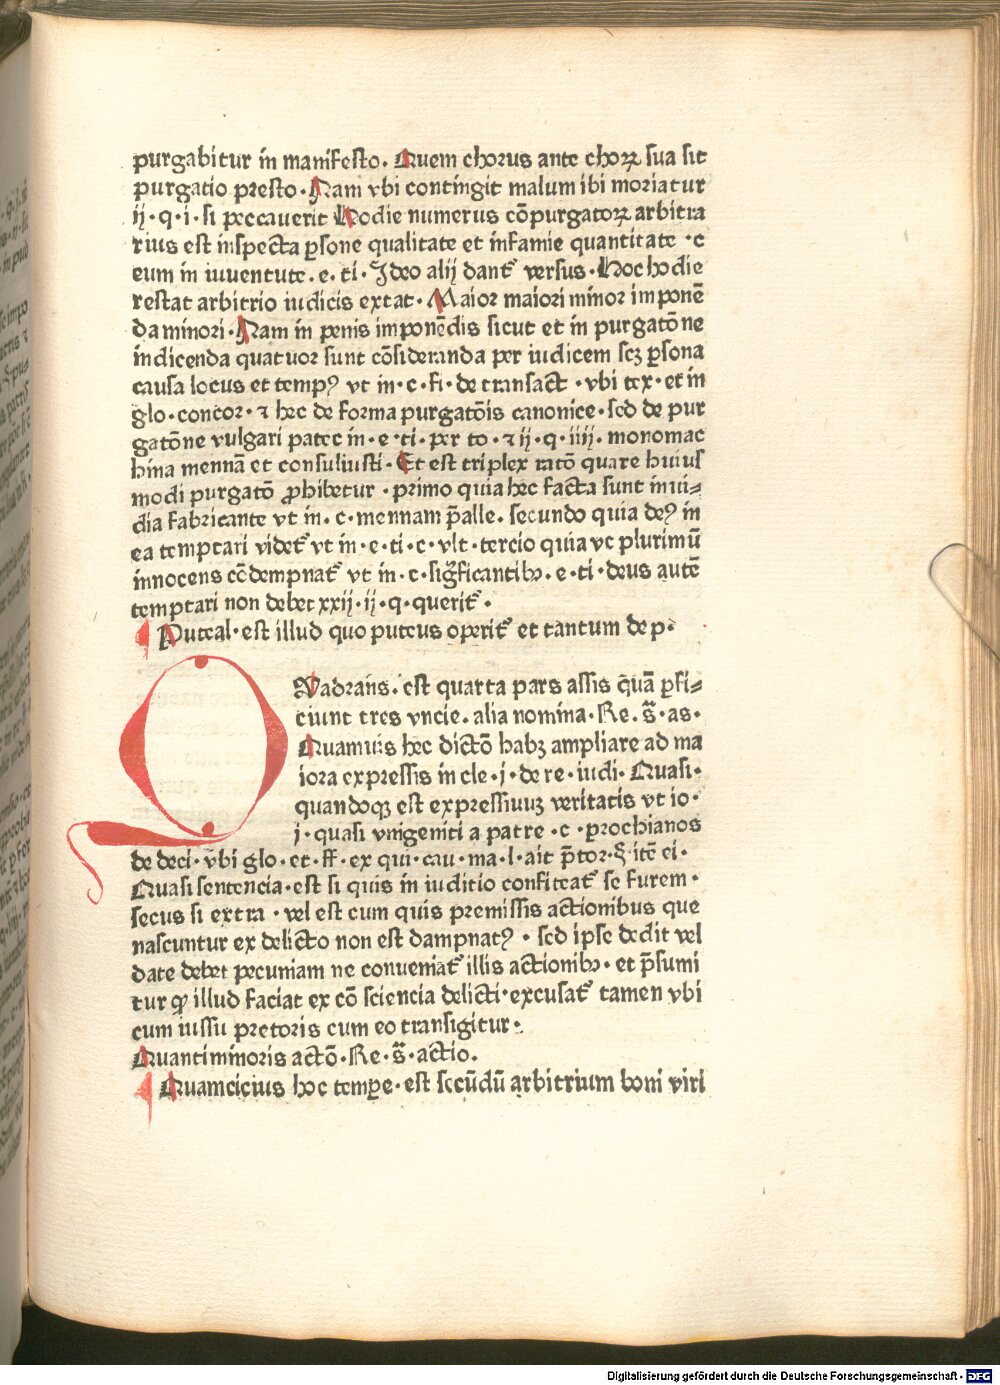 purgabitur in manifesto. Quem chorus ante choꝝ sua sit
purgatio presto. Nam vbi contingit malum ibi moriatur
ij·q·i·si peccauerit Hodie numerus cōpurgatoꝝ arbitra
rius est inspecta ꝑsone qualitate et infamie quantitate ·c
eum in iuuentute. e. ti· Ideo alij dant᷑ versus· Hoc hodie
restat arbitrio iudicis extat· Maior maiori minor imponē
da minori· Nam in penis imponēdis sicut et in purgatōne
indicenda quatuor sunt cōsideranda per iudicem scꝫ ꝑsona
causa locus et tempꝰ vt in·c·fi·de transact̄ ·vbi tex·et in
glo·concor·⁊ hec de forma purgatōis canonice·sed de pur
gatōne vulgari patet in·e·ti·per to·⁊ ij·q·iiij· monomac
hina mennā et consuliusti· Et est triplex ratō quare huius
modi purgatō ꝓhibetur ·primo quia hec facta sunt inui⸗
dia fabricante vt in. c·mennam p̄alle. secundo quia deꝰ in
ea temptari videt᷑ vt in·e·ti·c·vlt·tercio quia vt plurimū
innocens cōdempnat᷑ vt in·c·sigficantibꝫ. e·ti·deus autē
temptari non debet xxij·ij·q·querit᷑·
Puteal·est illud quo puteus operit᷑ et tantum de p·
QVadrans. est quarta pars assis quā ꝑfi⸗
ciunt tres vncie. alia nomina·Re. s̄·as·
Quamuis hec dictō habꝫ ampliare ad ma
iora expressis in cle·j·de re·iudi· Quasi·
quandoqꝫ est expressiuuꝫ veritatis vt io·
j·quasi vnigeniti a patre ·c·prochianos
de deci·vbi glo·et·ff·ex qui·cau·ma·l·ait p̄tor·§·itē ei·
Quasi sentencia·est si quis in iuditio confiteat᷑ se furem·
secus si extra ·vel est cum quis premissis actionibus que
nascuntur ex delicto non est dampnatꝰ · sed ipse dedit vel
date debet pecuniam ne conueniat᷑ illis actionibꝫ· et p̄sumi
tur ꝙ illud faciat ex cō sciencia delicti·excusat᷑ tamen vbi
cum iussu pretoris cum eo transigitur·
Quantiminoris actō·Re·s̄·actio.
Quamcicius hoc tempe·est secūdū arbitrium boni viri
Digitalisierung gefördert durch die Deutsche Forschungsgemeinschaft - DFG